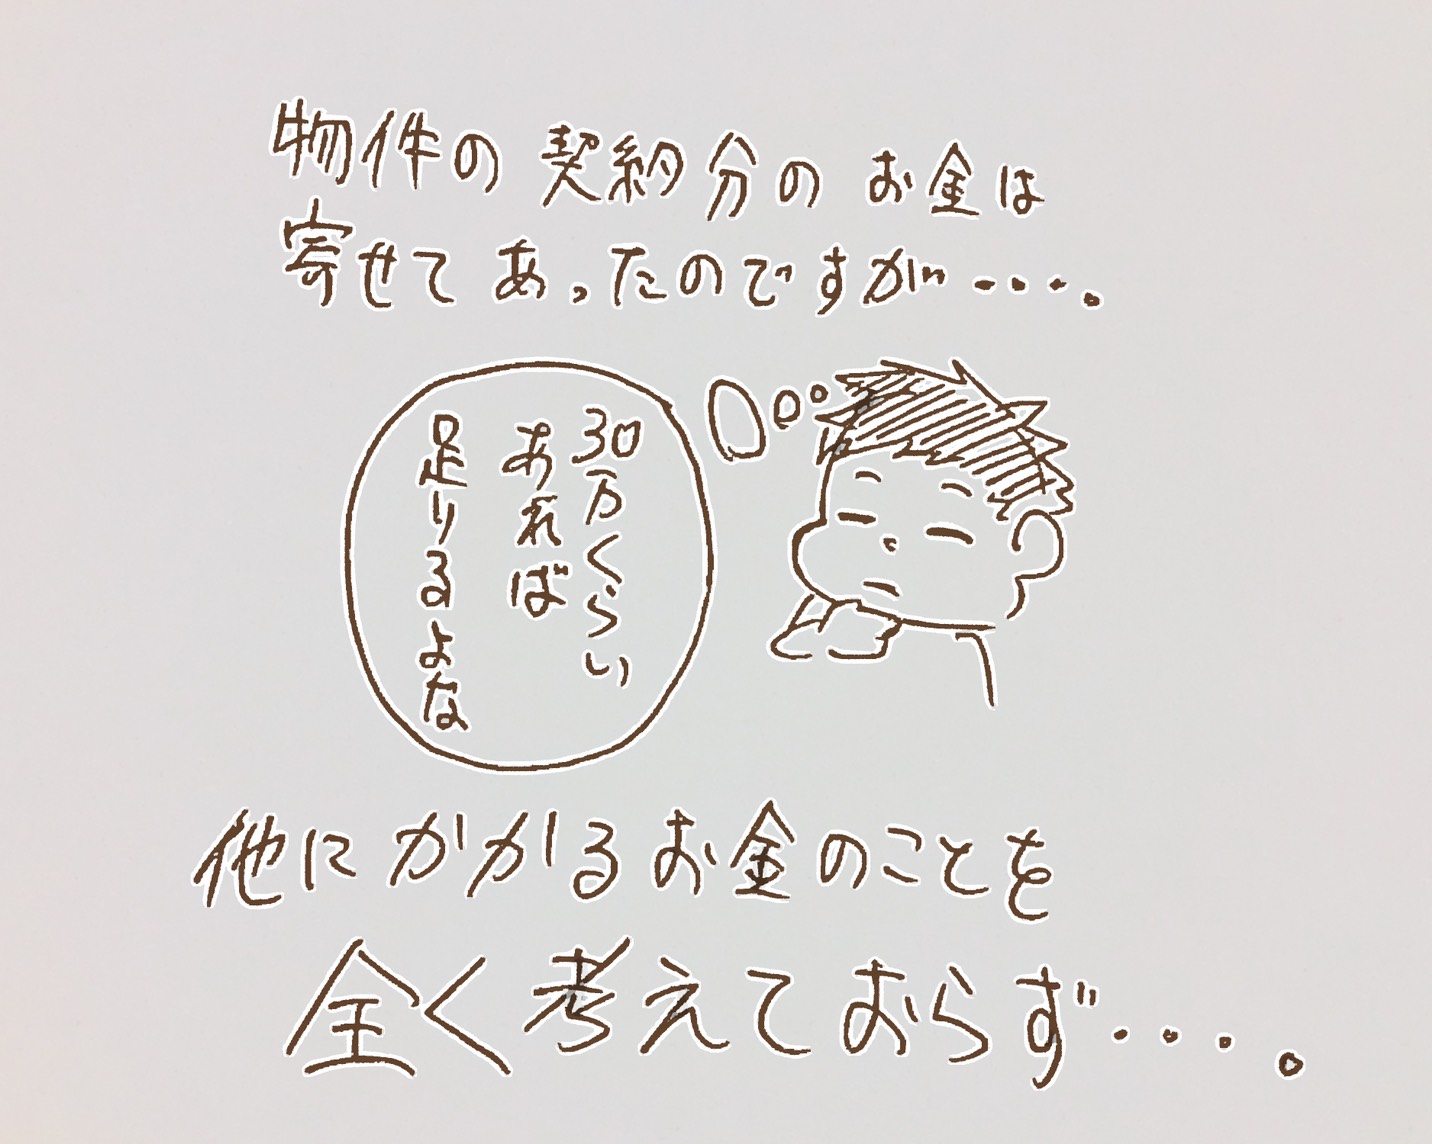 物件の契約分のお金は
寄せてあったのですが‥‥。
30万くらい
あれば
足りるよな
他にかかるお金のことを
全く考えておらず‥‥。